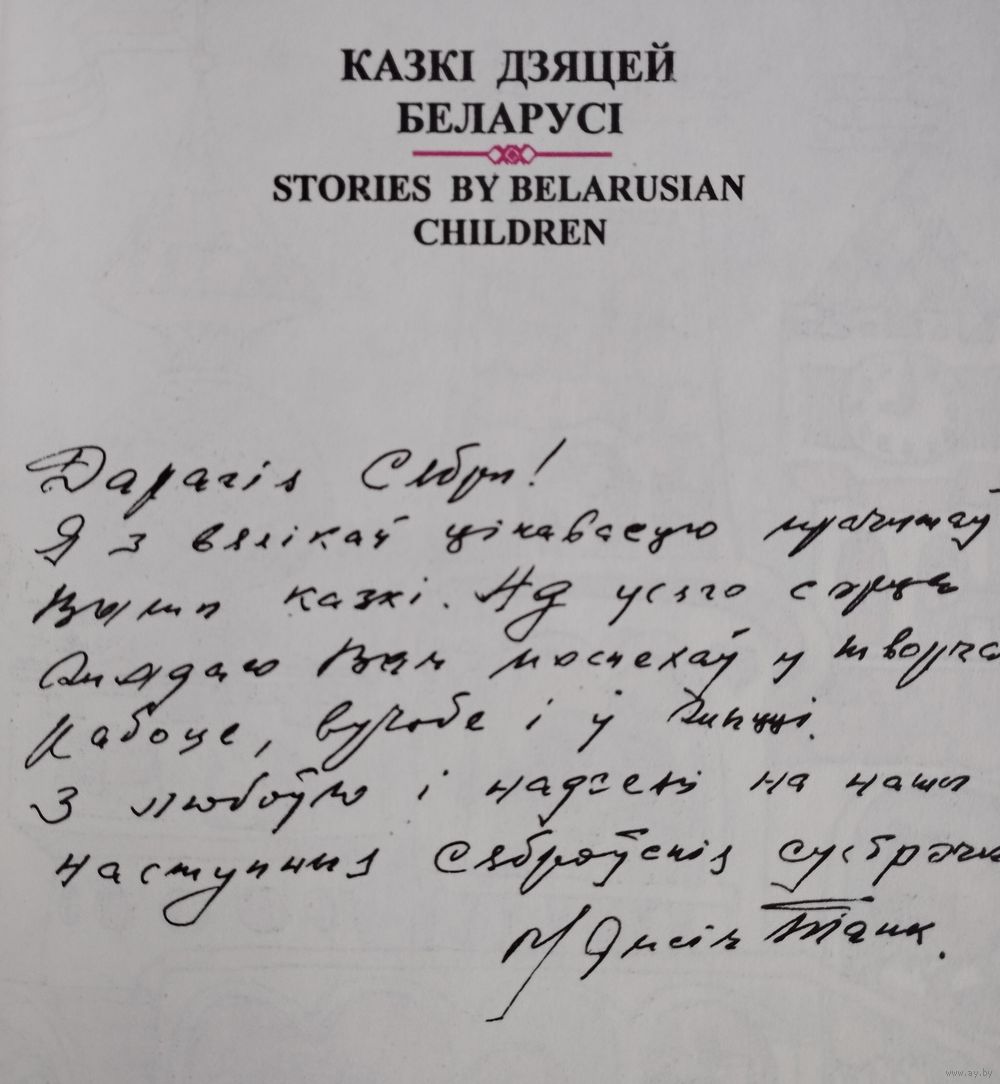 КАЗКІ ДЗЯЦЕЙ
БЕЛАРУСІ
STORIES BY BELARUSIAN
CHILDREN
Дарагія Сябры!
Я з вялікай цікавасцю прачытаў
Вашы казкі. Ад усяго сэрца
жадаю Вам поспехаў у творча
рабоце, вучобе і ў жыцці.
З любоўю і надзеяй на нашы
наступныя сяброўскія сустрэчы
Максім Танк.
www.ay.by